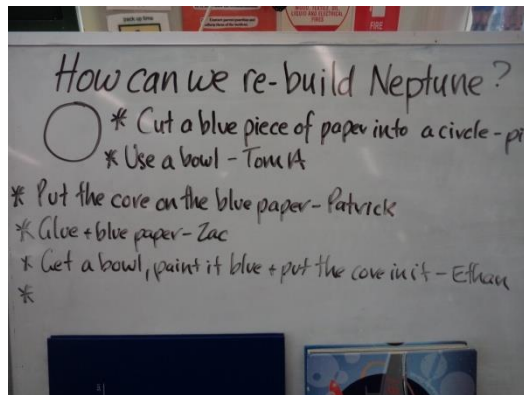 pack up time
LIQUID AND ELECTRICAL
FIRES
FIRE
How can we re-build Neptune?
* Cut a blue piece of paper into a circle -
* Use a bowl - Tom A
* Put the core on the blue paper - Patrick
* Glue + blue paper - Zac
* Get a bowl, paint it blue + put the core in it - Ethan
*